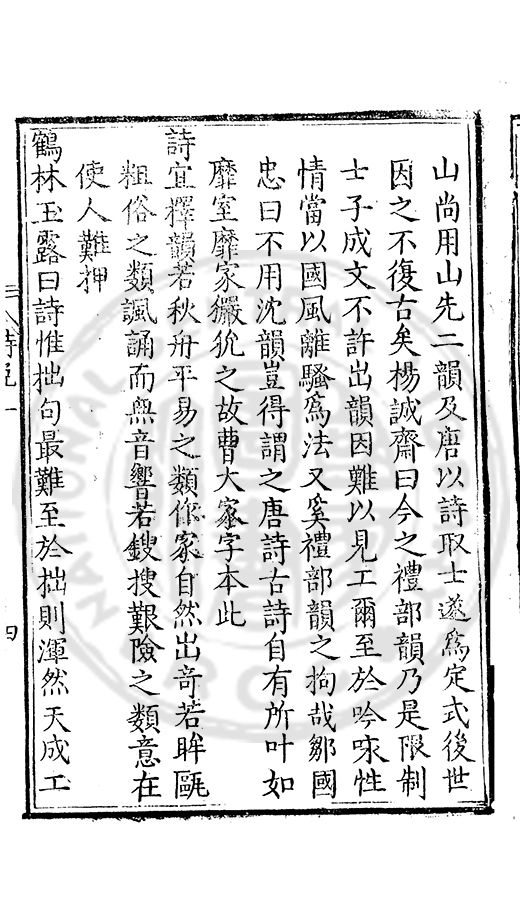 山尚用山先二韻及唐以詩取士遂爲定式後世
因之不復古矣楊誠齋曰今之禮部韻乃是限制
士子成文不許出韻因難以見工爾至於吟咏性
情當以國風離騷爲法又奚禮部韻之拘哉鄒國
忠曰不用沈韻豈得謂之唐詩古詩自有所叶如
靡室靡家玁狁之故曹大家字本此
詩宜擇韻若秋舟平易之類作家自然出奇若眸甌
粗俗之類諷誦而無音響若鎪搜艱險之類意在
使人難押
鶴林玉露曰詩惟拙句最難至於拙則渾然天成工
詩說一
四
NATIONAL